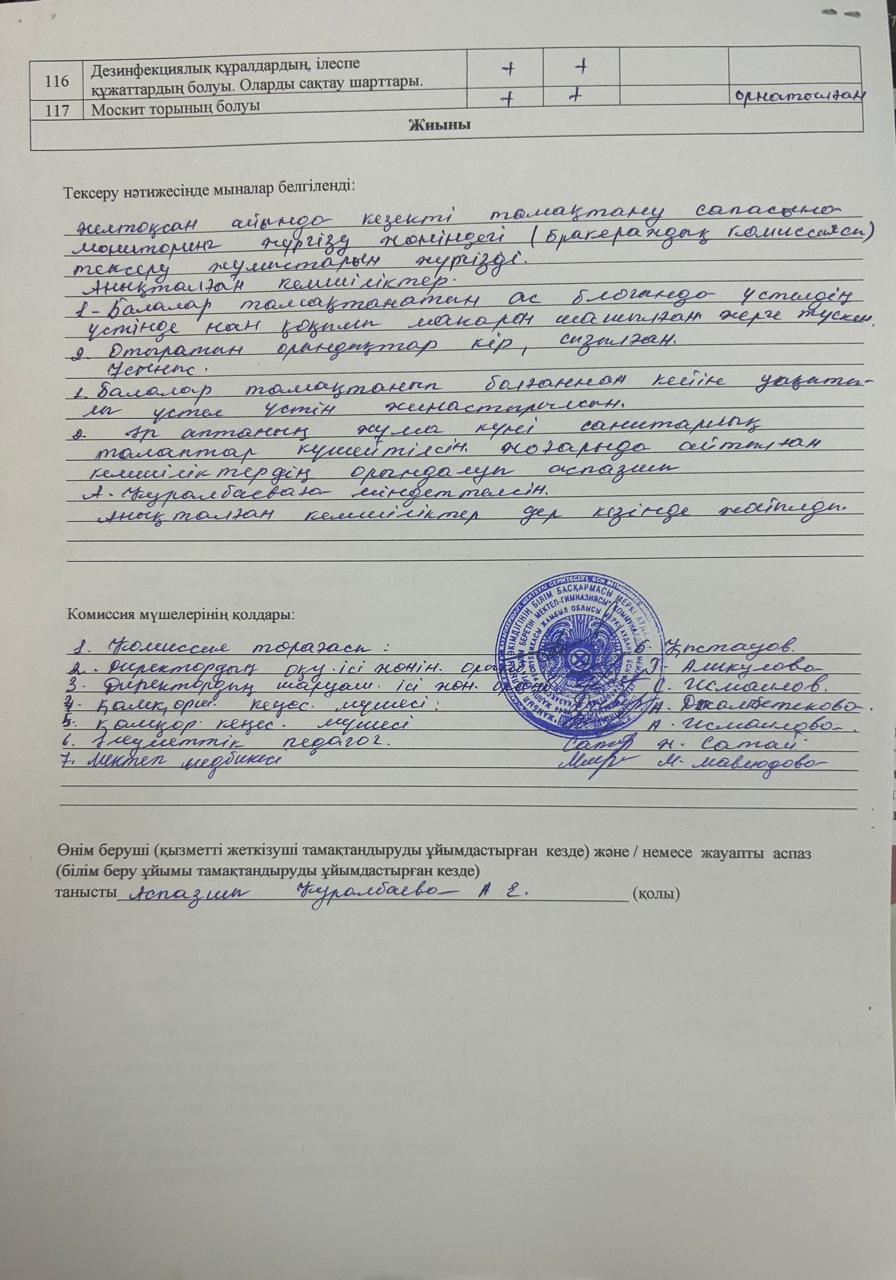 116 Дезинфекциялық құралдардың, ілеспе құжаттардың болуы. Оларды сақтау шарттары. + +
117 Москит торының болуы + + орнатылған
Жиыны
Тексеру нәтижесінде мыналар белгіленді:
Желтоқсан айында кезекті тамақтану сапасына
мониторинг жүргізу жөніндегі (бракераждық комиссиясы)
тексеру жұмыстарын жүргізді.
Анықталған кемшіліктер.
1 - Балалар тамақтанатын ас блогында үстелдің
үстінде нан қоқымы макарон шашылған жерге түскен.
2. Отыратын орындықтар кір, сызылған.
Ұсыныс.
1. Балалар тамақтанып болғаннан кейін уақыты-
лы үстел үстін жинастырылсын.
2. Әр аптаның жұма күні санитарлық
талаптар күшейтілсін. Жоғарыда айтылған
кемшіліктердің орындалуы аспазшы
А. Құралбаеваға міндеттелсін.
Анықталған кемшіліктер дер кезінде жойылды.
Комиссия мүшелерінің қолдары:
1. Комиссия төрағасы: Қыстауов.
2. Директордың оқу ісі жөнін. орынб. Аликулова
3. Директордың шаруаш. ісі жөн. орынб. С. Исмаилов.
4. Қамқоршы кеңес. мүшесі: А. Джамбекова.
5. Қамқор кеңес. мүшесі А. Исмаилова.
6. Әлеуметтік педагог. Н. Сатай
7. Мектеп медбикесі М. Мавлюдова
Өнім беруші (қызметті жеткізуші тамақтандыруды ұйымдастырған кезде) және / немесе жауапты аспаз
(білім беру ұйымы тамақтандыруды ұйымдастырған кезде)
танысты Аспазшы Құралбаева А Е. (қолы)